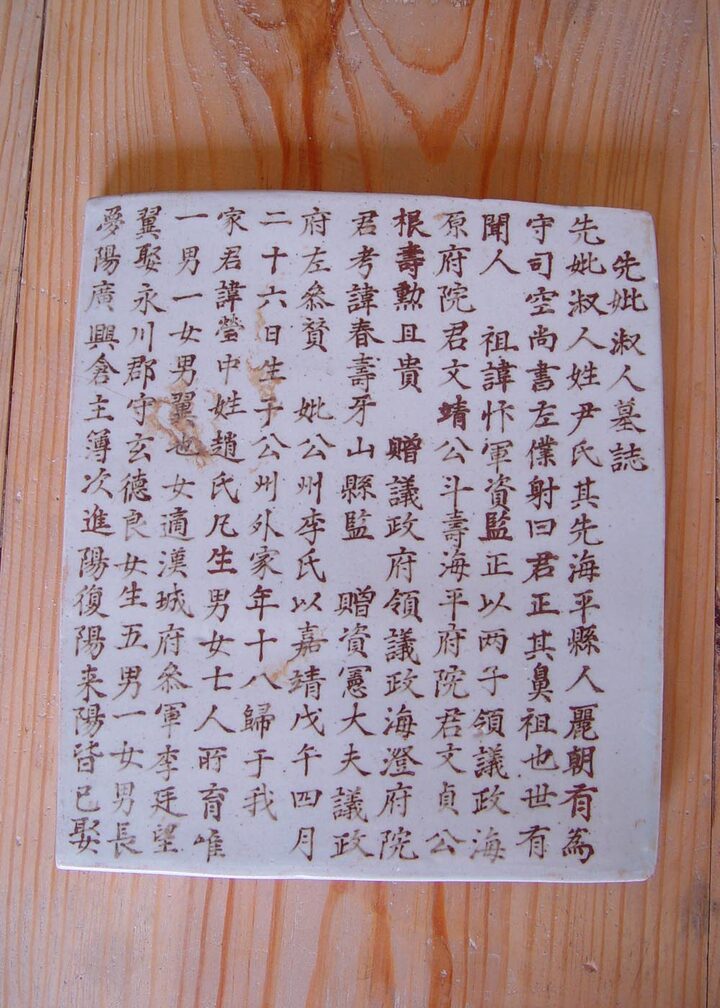 先妣淑人墓誌
先妣淑人姓尹氏其先海平縣人麗朝有為
守司空尚書左僕射曰君正其鼻祖也世有
聞人　祖諱忭軍資監正以两子領議政海
原府院君文靖公斗壽海平府院君文貞公
根壽勲且貴　贈議政府領議政海澄府院
君考諱春壽牙山縣監　贈資憲大夫議政
府左叅賛　妣公州李氏以嘉靖戊午四月
二十六日生于公州外家年十八歸于我
家君諱瑩中姓趙氏凡生男女七人所育唯
一男一女男翼也女適漢城府叅軍李廷望
翼娶永川郡守玄德良女生五男一女男長
夢陽廣興倉主簿次進陽復陽来陽皆已娶